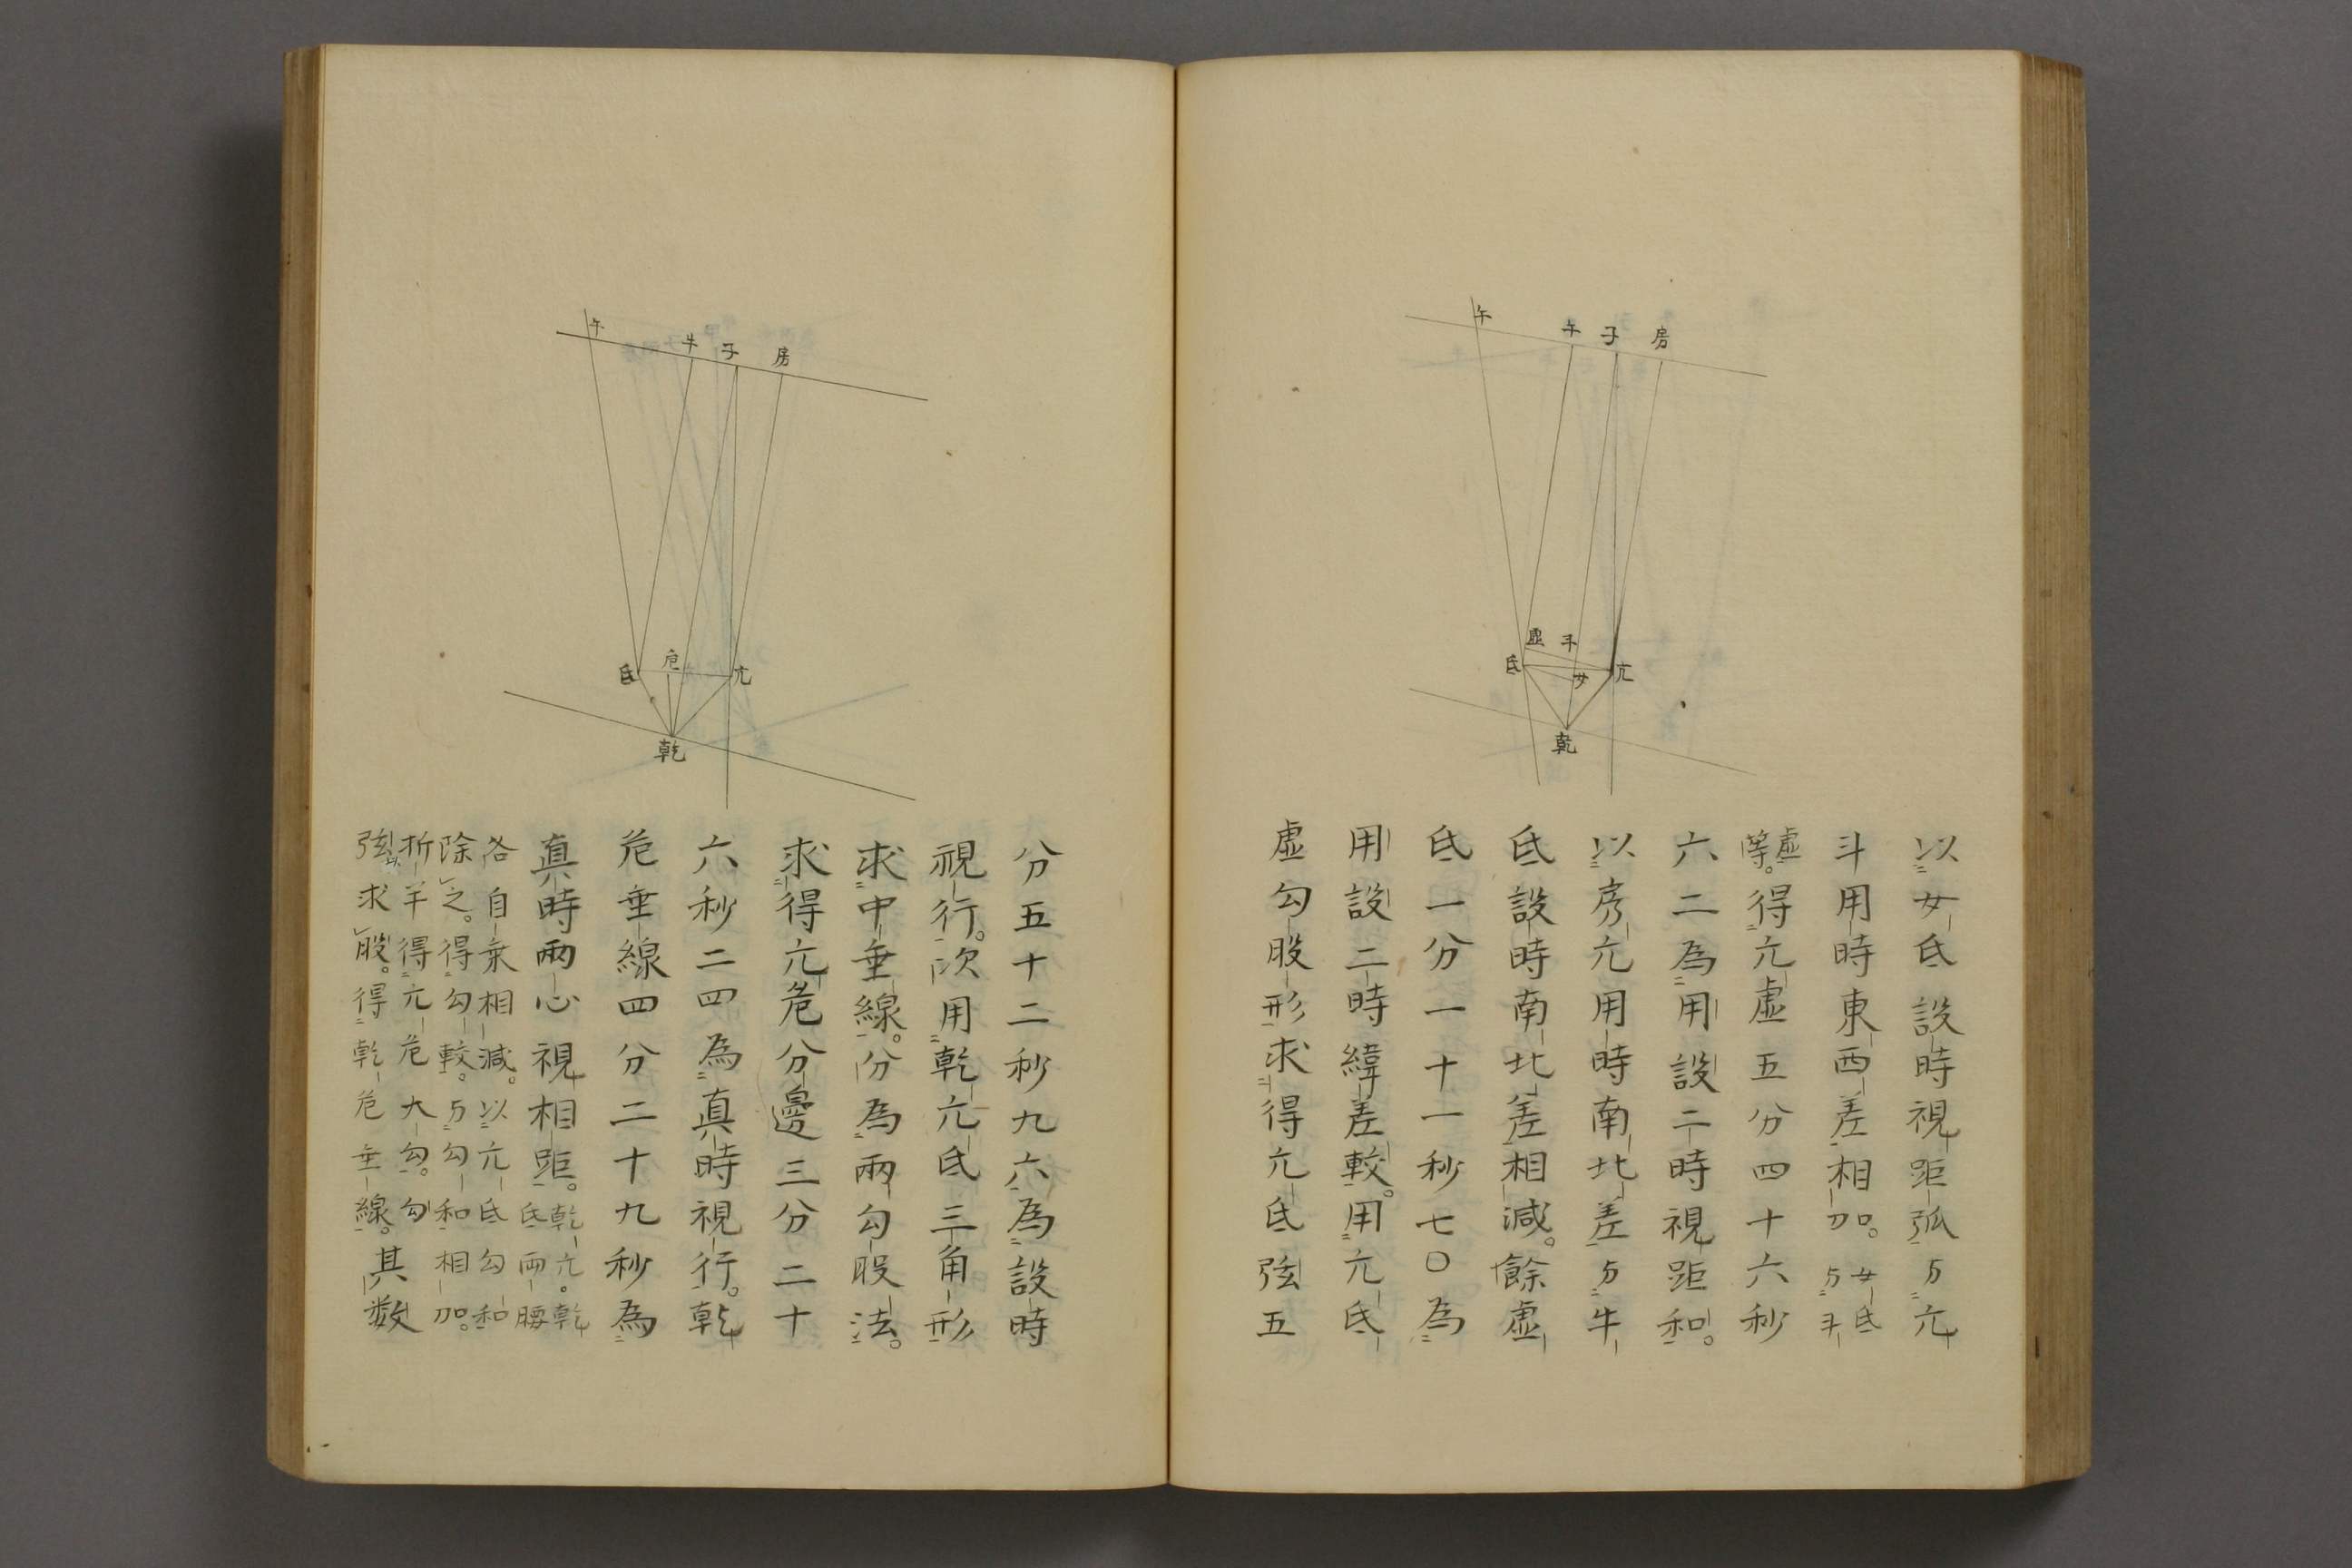 午
午
子
房
虚
斗
氐
女
亢
乾
以女氐設時視距弧与亢
斗用時東西差相加。女氐与斗
虚等。得亢虚五分四十六秒
六二為用設二時視距和。
以房亢用時南北差与牛
氐設時南北差相減。餘虚
氐一分一十一秒七〇為
用設二時緯差較。用亢氐
虚勾股形求得亢氐弦五
午
牛
子
房
氐
危
亢
乾
分五十二秒九六為設時
視行。次用乾亢氐三角形
求中垂線。分為兩勾股法。
求得亢危分邊三分二十
六秒二四為真時視行。乾
危垂線四分二十九秒為
真時兩心視相距。乾亢。乾氐兩腰
各自乗相減。以亢氐勾和
除之。得勾較。与勾和相加。
折半得亢危大勾。勾
弦求股。得乾危垂線。其数